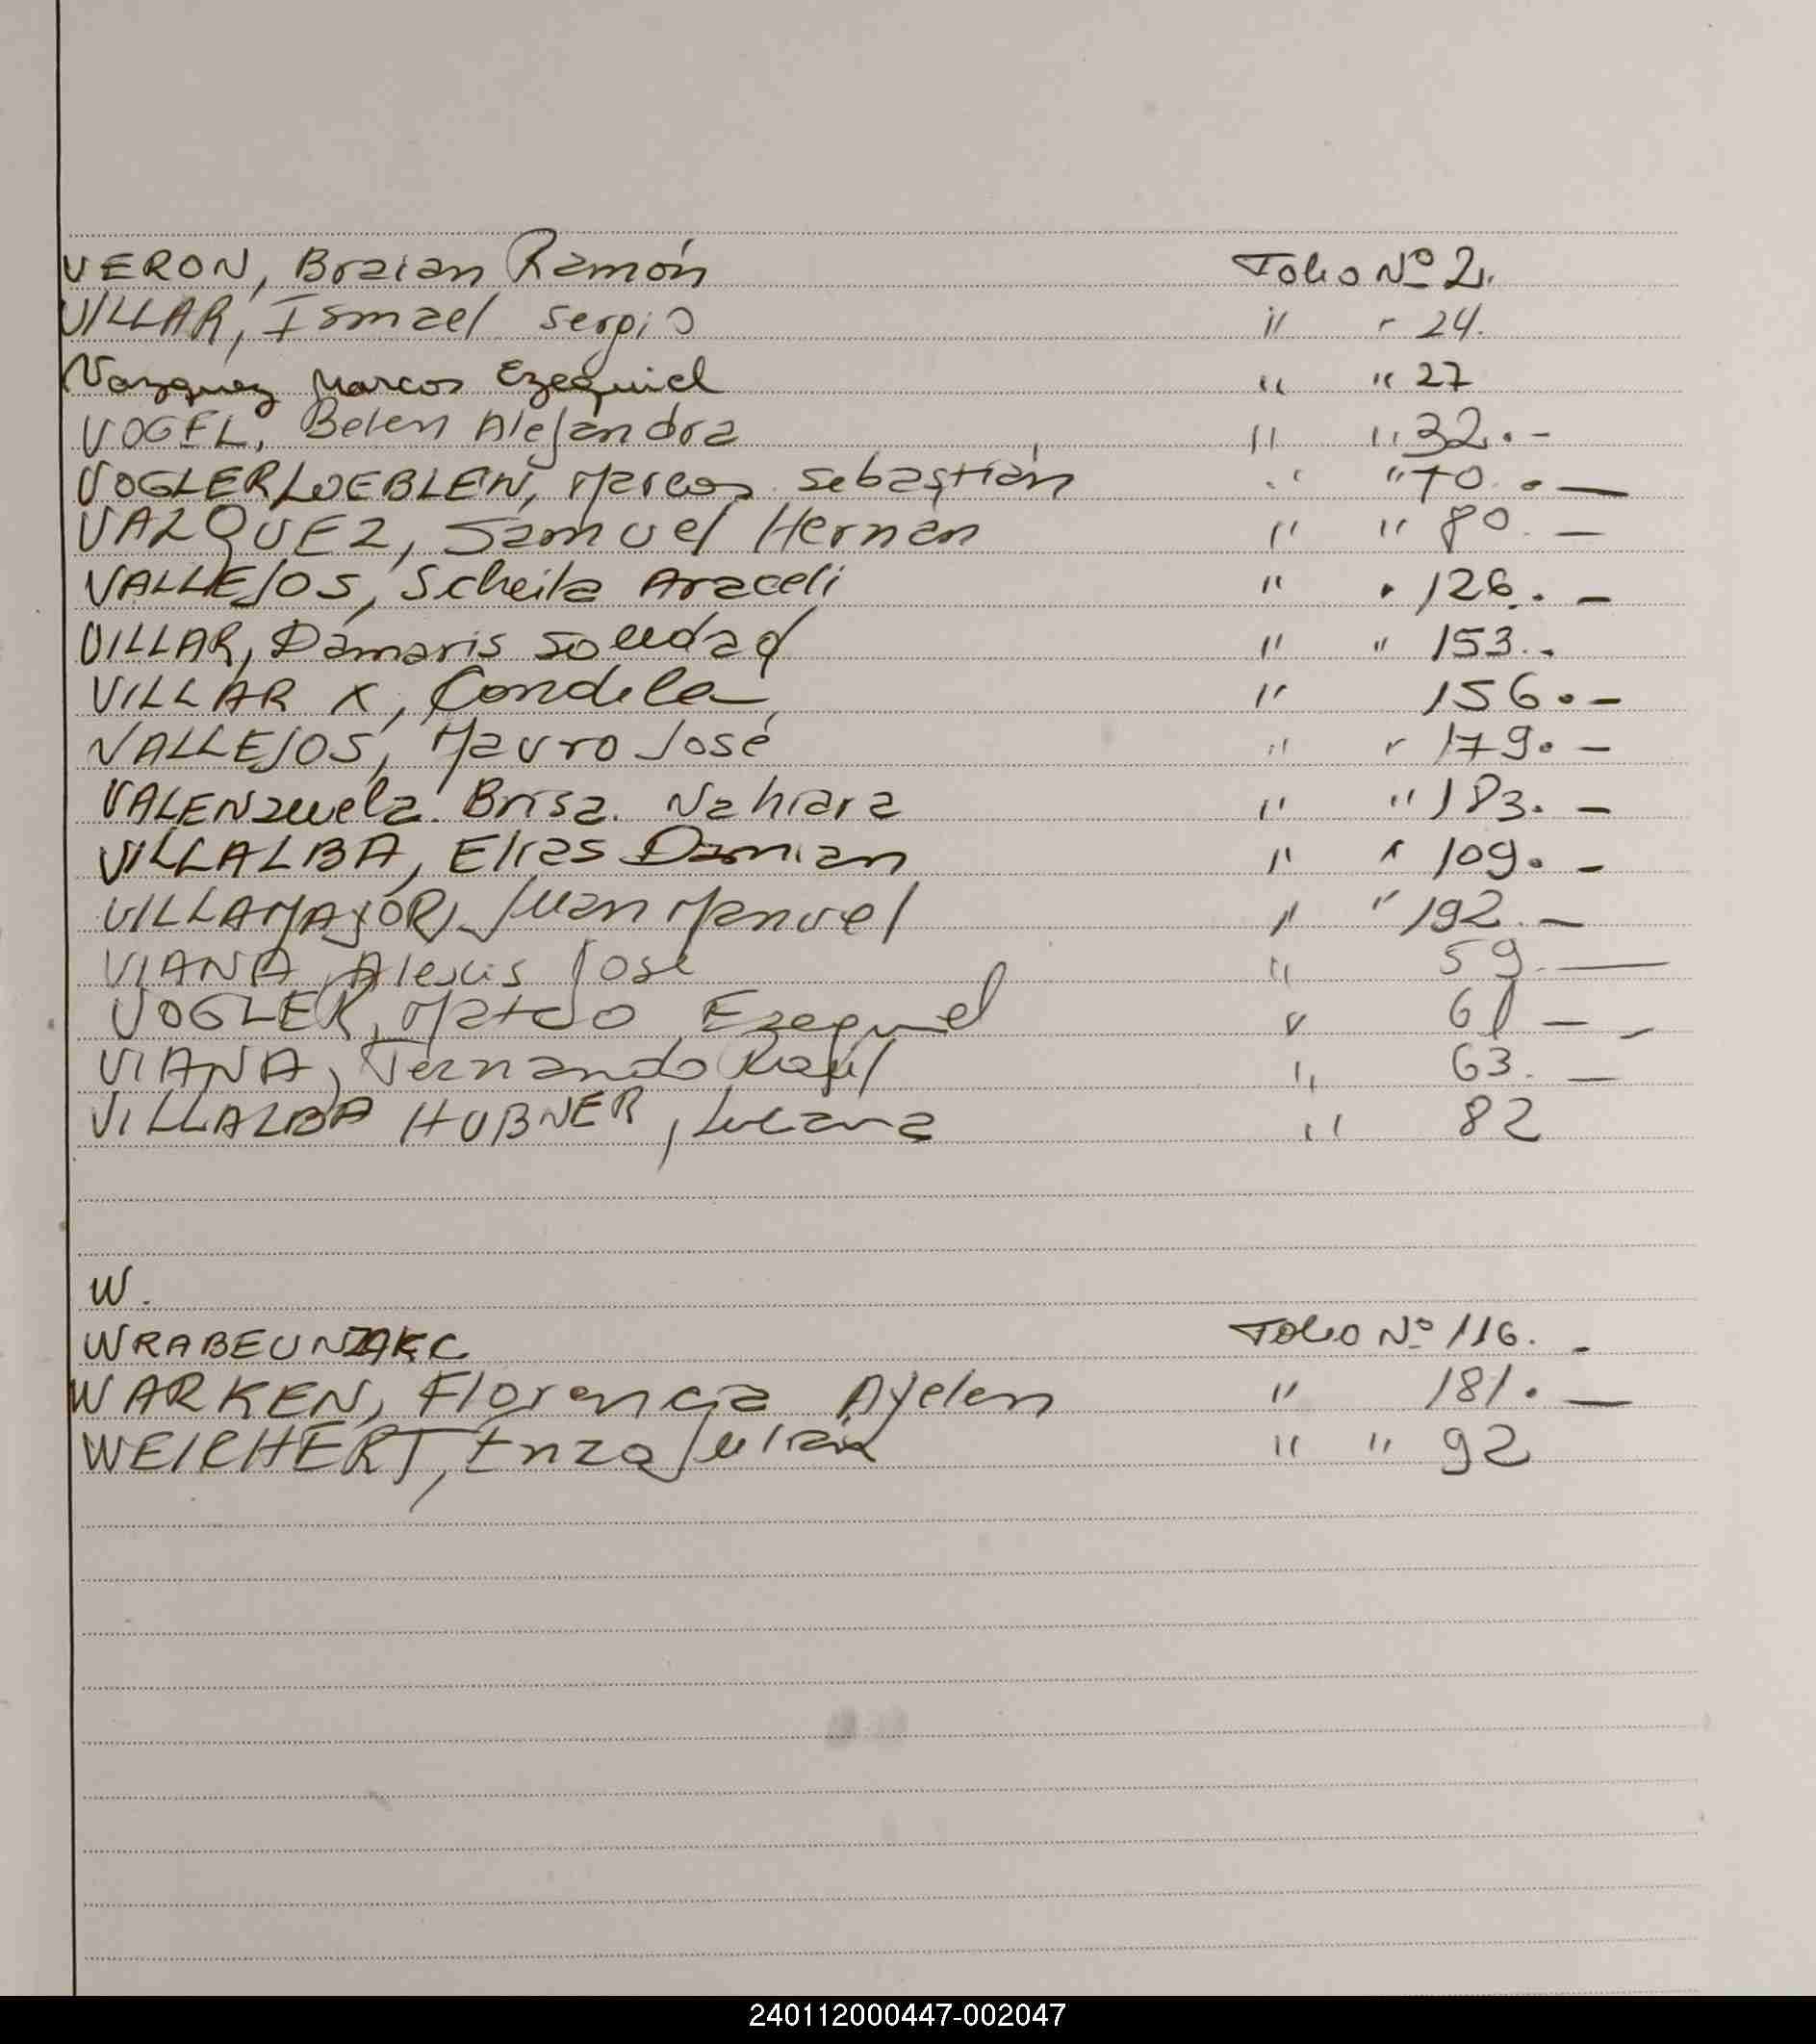 VERON, Braian Ramón Folio Nº 2.
VILLAR, Ismael Sergio " " 24.
Vazquez Marcos Ezequiel " " 27
VOGEL, Belen Alejandra " " 32.-
VOGLER LOEBLEIN, Marcos Sebastián " " 70.-
VAZQUEZ, Samuel Hernan " " 80.-
VALLEJOS, Scheila Araceli " " 126.-
VILLAR, Damaris Soledad " " 153.-
VILLAR X, Candela " 156.-
VALLEJOS, Mauro José " " 179.-
VALENzuela. Brisa. Nahiara " " 183.-
VILLALBA, Elias Damian " " 109.-
VILLAMAYOR, Juan Manuel " " 192.-
VIANA, Alexis José " 59.-
VOGLER, Mateo Ezequiel " 61 -
VIANA, Fernando Raúl " 63.-
VILLALBA HUBNER, Luciana " 82
W.
Folio Nº 116.-
WARKEN, Florencia Ayelen " 181.-
WEICHERT, Enzo Julián " " 92
240112000447-002047